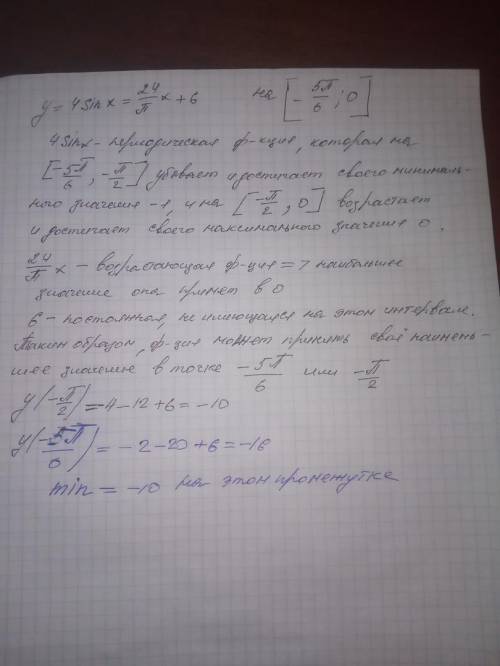 y = 4 sin x = 24/π x + 6 на [-5π/6 ; 0]
4 sin x - периодическая ф-кция, которая на
[-5π/6, -π/2] убывает и достигает своего минималь-
ного значения -1, и на [-π/2, 0] возрастает
и достигает своего максимального значения 0.
24/π x - возрастающая ф-ция => наибольшее
значение она примет в 0
6 - постоянная, на этом интервале.
Таким образом, ф-ция может принять своё наимень-
шее значение в точке -5π/6 или -π/2
y(-π/2) = -4 -12 +6 = -10
y(-5π/6) = -2 -20 +6 = -16
min = -10 на этом промежутке